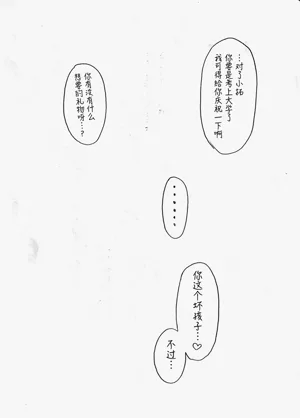 …对了小拓
你要是考上大学了
我可得给你庆祝一下啊
你有没有什么
想要的礼物呀…?
……
你这个坏孩子…♡
不过…